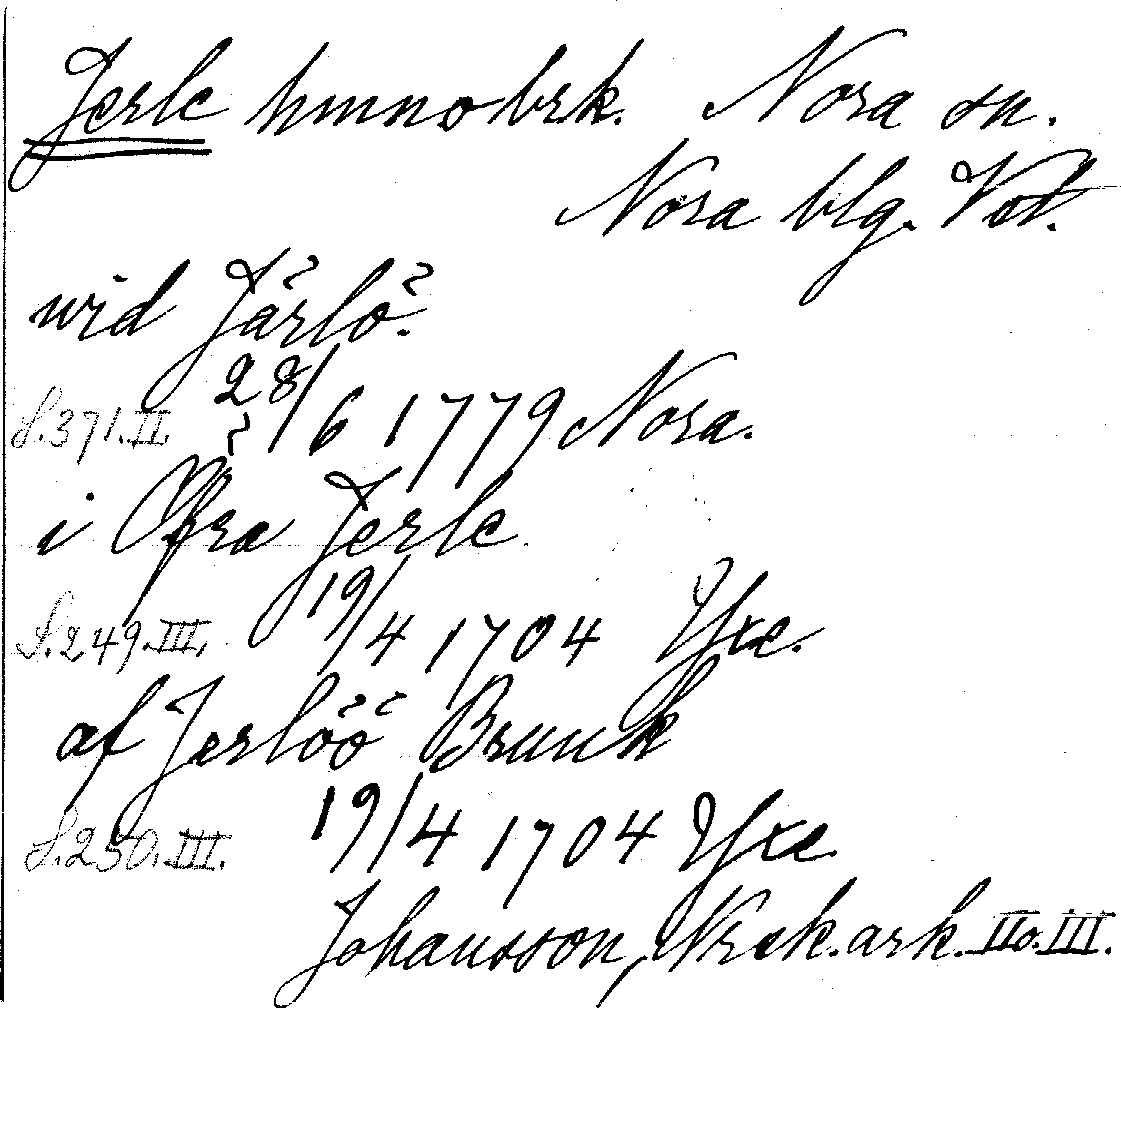 Jerle hmnsbrk. Nora sn.
Nora blg. Vstl.
wid Järlö.
S.371.II. 28/6 1779 Nora.
i Öfra Jerle
S.249.III. 19/4 1704 Yxe.
af Jerlöö Bruuk
S.250.III. 19/4 1704 Yxe
Johansson, Nrsk. ark. II o. III.